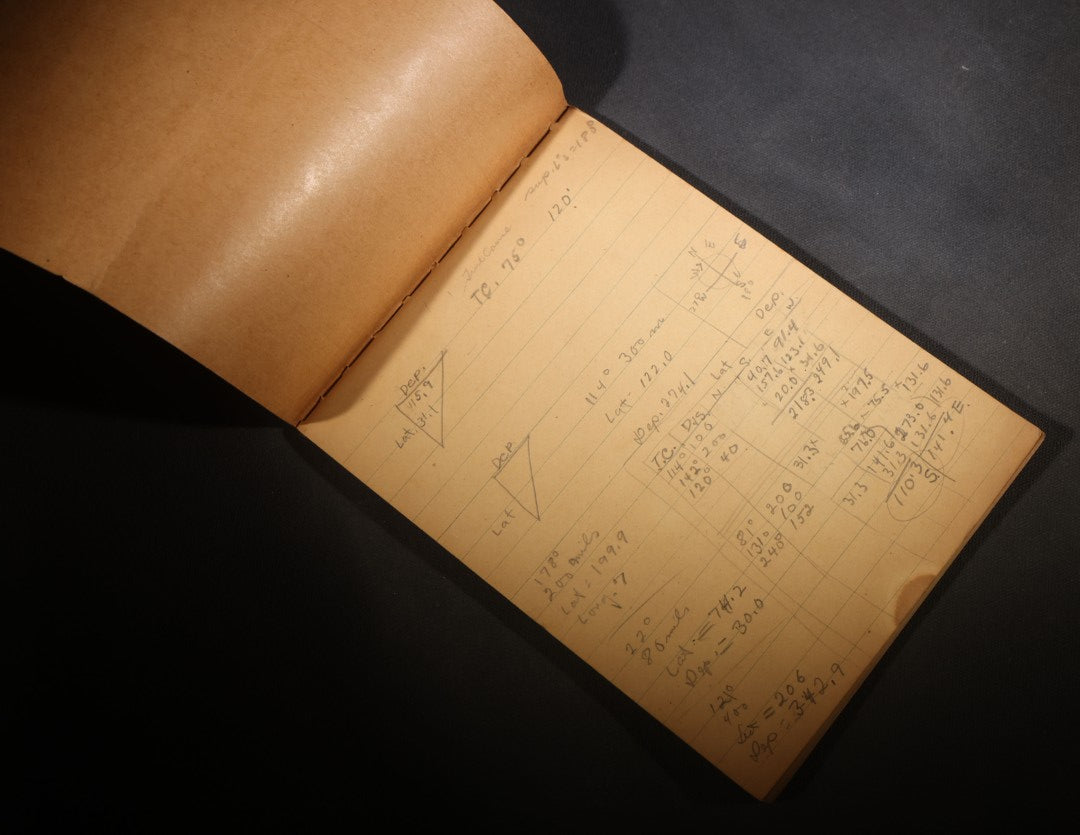 sup. L's = 188
120'
True Course
T.C. 75°
Dep.
115.9
Lat 31.1
Dep
Lat
114° 300 mi
Lat 122.0
Dep. 274.1
N E
S W
Dep.
T.C. Dis. N. Lat S. E W.
114° 100 40.7 91.4
142° 200 157.6 123.1
120° 40 20.0 34.6
218.3 249.1
178°
200 mils
Lat = 199.9
Long
22°
80 mils
Lat. = 74.2
Dep. = 30.0
81° 200 31.3
131° 100
248° 152
197.5
75.5
131.6
31.3 141.6 273.0 131.6
31.3 131.6
110.3 141.4 E.
S.
121°
400
Lat = 206
Dep = 342.9